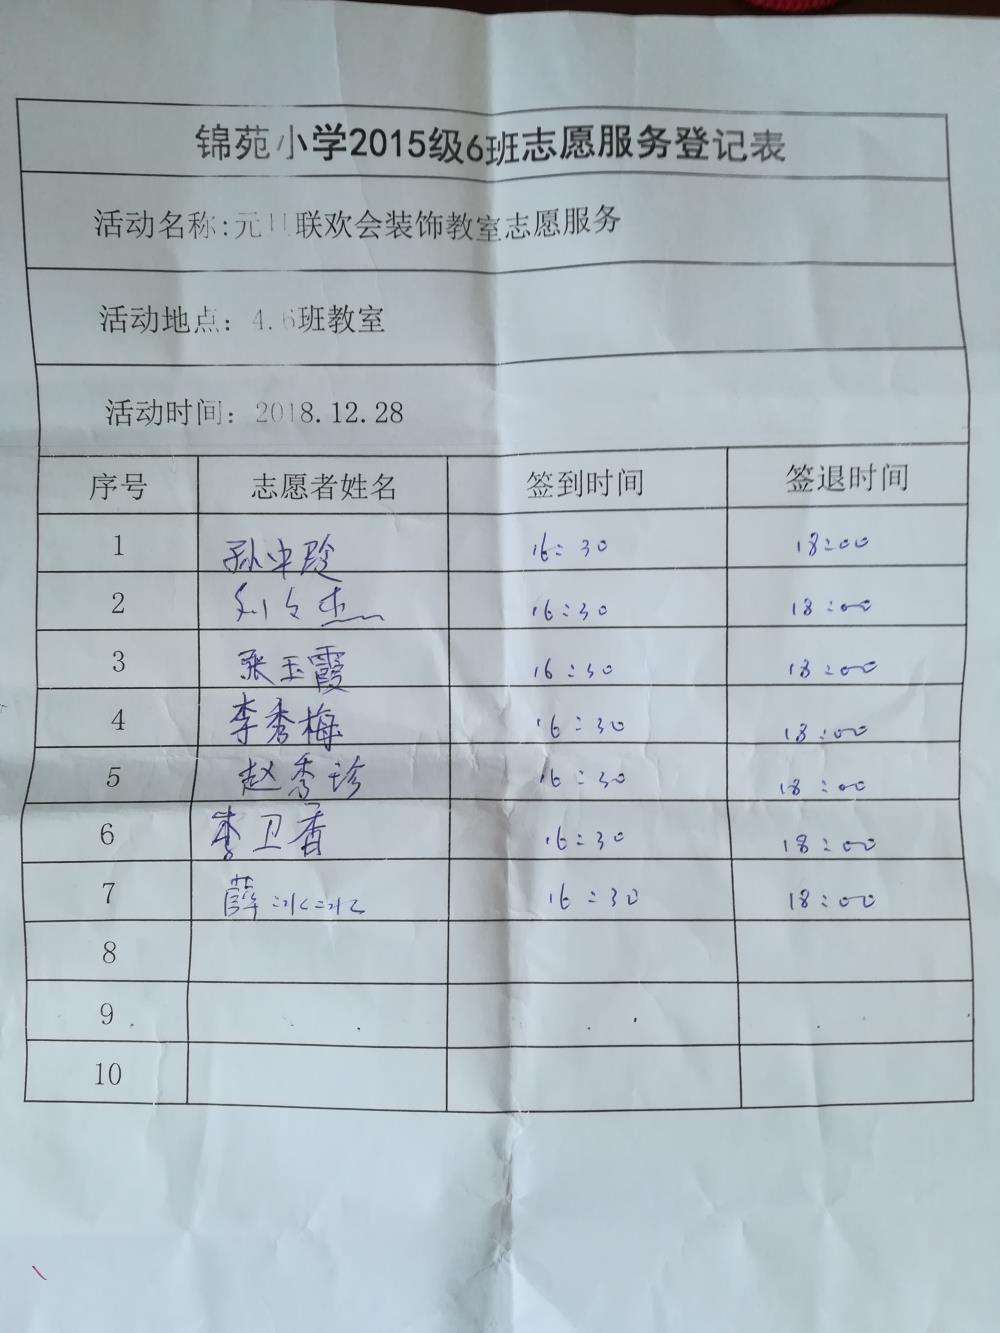 锦苑小学2015级6班志愿服务登记表
活动名称:元旦联欢会装饰教室志愿服务
活动地点: 4.6班教室
活动时间: 2018.12.28
序号 志愿者姓名 签到时间 签退时间
1 孙中玲 16:30 18:00
2 刘 杰 16:30 18:00
3 张玉霞 16:30 18:00
4 李秀梅 16:30 18:00
5 赵秀珍 16:30 18:00
6 李卫香 16:30 18:00
7 薛冰冰 16:30 18:00
8
9
10